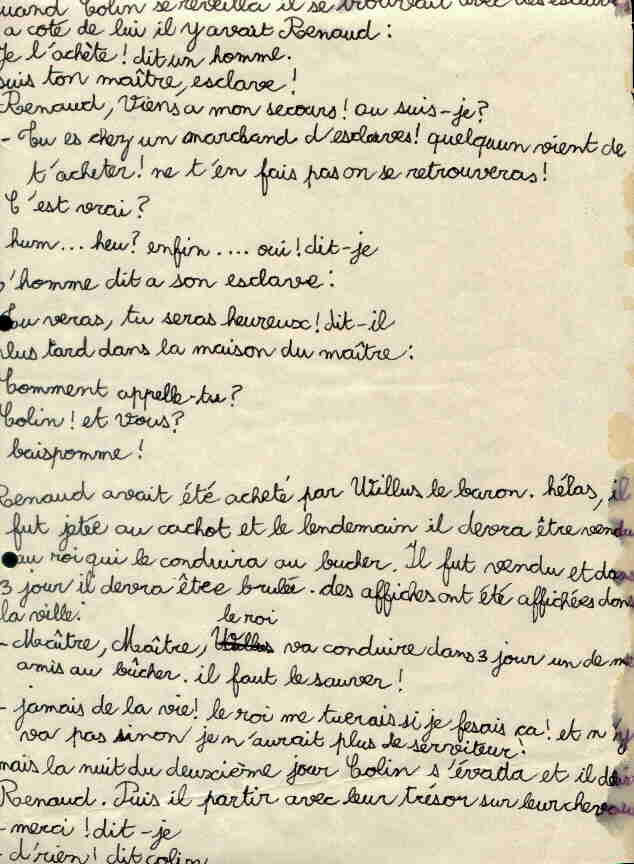 quand Colin se réveilla il se trouvait avec des esclaves
a coté de lui il y avait Renaud :
Je l'achète ! dit un homme.
suis ton maître, esclave !
Renaud, Viens a mon secours ! ou suis-je ?
- Tu es chez un marchand d'esclaves ! quelqu'un vient de
t'acheter ! ne t'en fais pas on se retrouveras !
C'est vrai ?
hum... heu ? enfin .... oui ! dit-je
L'homme dit a son esclave :
Tu veras, tu seras heureux ! dit-il
plus tard dans la maison du maître :
Comment appelle-tu ?
Colin ! et Vous ?
baispomme !
Renaud avait été acheté par Willus le baron. hélas, il
fut jetée au cachot et le lendemain il devra être vendu
au roi qui le conduira au bucher. Il fut vendu et dans
3 jour il devra être brulée. des affiches ont été affichées dans
la ville :
le roi
- Maître, Maître, Willus va conduire dans 3 jour un de mes
amis au bûcher. il faut le sauver !
- jamais de la vie ! le roi me tuerais si je fesais ça ! et n'y
va pas sinon je n'aurait plus de serviteur !
mais la nuit du deuxième jour Colin s'évada et il
Renaud. Puis il partir avec leur trésor sur leur chevaux
- merci ! dit-je
- d'rien ! dit colin